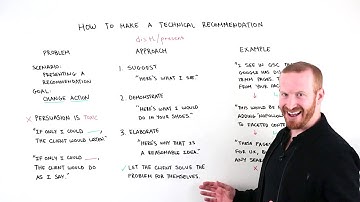 HOW TO MAKE A TECHNICAL RECOMMENDATION
distl/present
PROBLEM
SCENARIO:
PRESENTING A
RECOMMENDATION
GOAL:
CHANGE ACTION
X PERSUASION IS TOXIC
"IF ONLY I COULD ___,
THE CLIENT WOULD LISTEN."
"IF ONLY I COULD ___,
THE CLIENT WOULD DO
AS I SAY."
APPROACH
1. SUGGEST
"HERE'S WHAT I SEE."
2. DEMONSTRATE
"HERE'S WHAT I WOULD
DO IN YOUR SHOES."
3. ELABORATE
"HERE'S WHY THAT IS
A REASONABLE IDEA."
✓ LET THE CLIENT SOLVE THE
PROBLEM FOR THEMSELVES.
EXAMPLE
"I SEE IN GSC
GOOGLE HAS
TERM PAGES
FROM YOUR
"THIS WOULD BE
ADDING "NOFOLLOW
TO FACETED
"THESE PAGES
FOR UX, BU
ANY SEAR
X